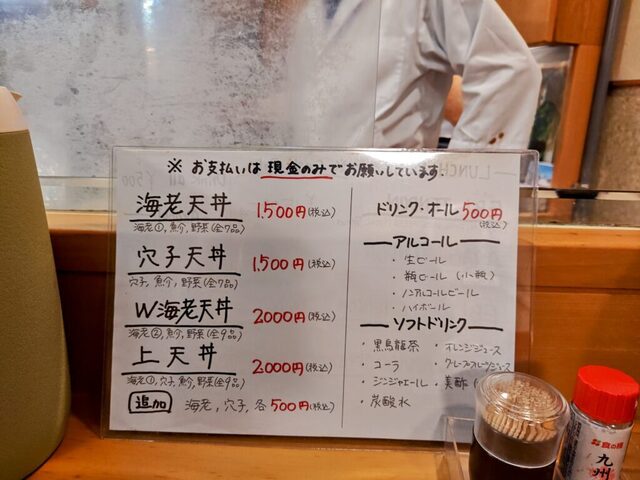 ※ お支払いは 現金のみでお願いしています.
海老天丼 1,500円(税込)
海老①,魚介,野菜(全7品)
穴子天丼 1,500円(税込)
穴子,魚介,野菜(全7品)
W海老天丼 2,000円(税込)
海老②,魚介,野菜(全9品)
上天丼 2,000円(税込)
海老①,穴子,魚介,野菜(全9品)
追加 海老,穴子,各500円(税込)
ドリンク・オール 500円
(税込)
アルコール
・生ビール
・瓶ビール (小瓶)
・ノンアルコールビール
・ハイボール
ソフトドリンク
・黒烏龍茶 ・オレンジジュース
・コーラ ・グレープフルーツジュース
・ジンジャエール ・美酢
・炭酸水
LUNCH
九州